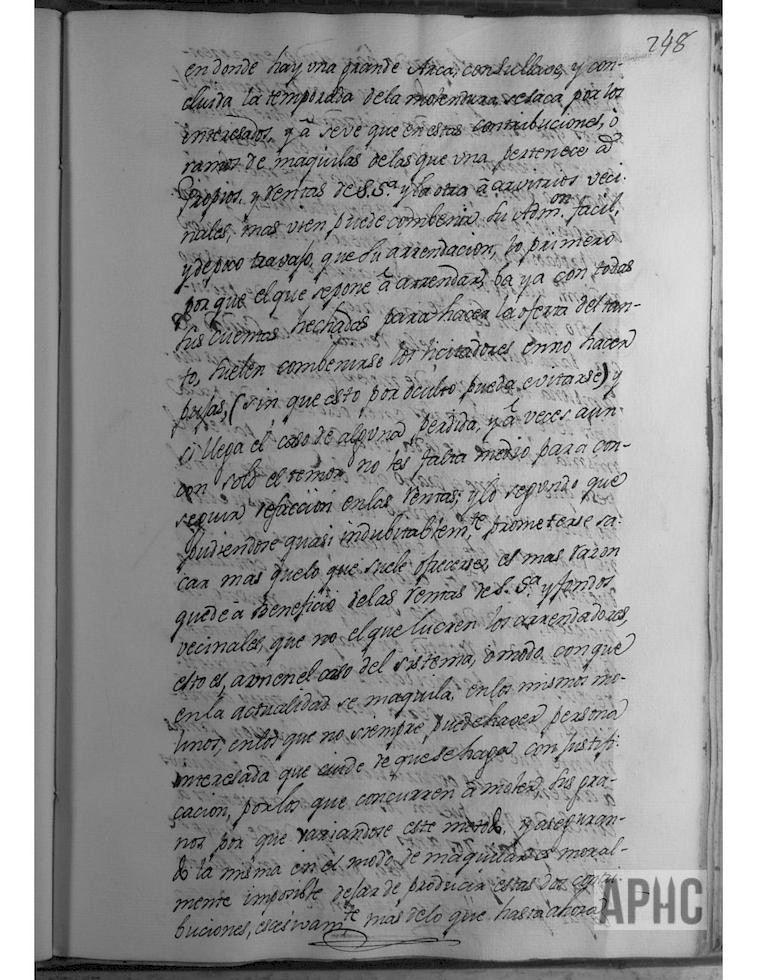 248
en donde hay vna grande Arca, con su llave, y con-
cluida la temporada dela molendura se saca por los
interesados, y a se ve que en estas contribuciones, ò
ramos de maquilas delas que vna pertenece a
Propios, y Rentas de S.Sª. y la otra à arvitrios veci-
nales, mas vien puede combenir su Admon. facil,
y de poco travajo, que su arrendacion, lo primero
por que el que se pone à arrendar, ba ya con todas
sus cuentas hechadas para hacer la oferta del tan-
to, suelen combenirse los licitadores en no hacer
pujas, (sin que esto por oculto pueda evitarse) y
si llega el caso de alguna perdida, y à veces aun
con solo el temor no les falta medio para con-
seguir refaccion enlas Rentas; y lo segundo que
pudiendose quasi indubitablemte. prometerse sa-
car mas quelo que suele ofrecerse, es mas razon
quede à Beneficio delas Rentas de S. Sª. y fondos
vecinales, que no el que lucren los arrendadores,
esto es, aun en el caso del sistema, ò modo con que
en la actualidad se maquila, enlos mismos mo-
linos, enlos que no siempre puede haver persona
interesada que cuide de que se haga con Justifi-
cacion, por los que concurren à moler, sus gra-
nos por que variandose este metodo, y aseguran-
do la misma en el modo de maquilar es moral-
mente imposible dejar de producir estas dos contri-
buciones, escesivamte. mas delo que hasta ahora
APHC